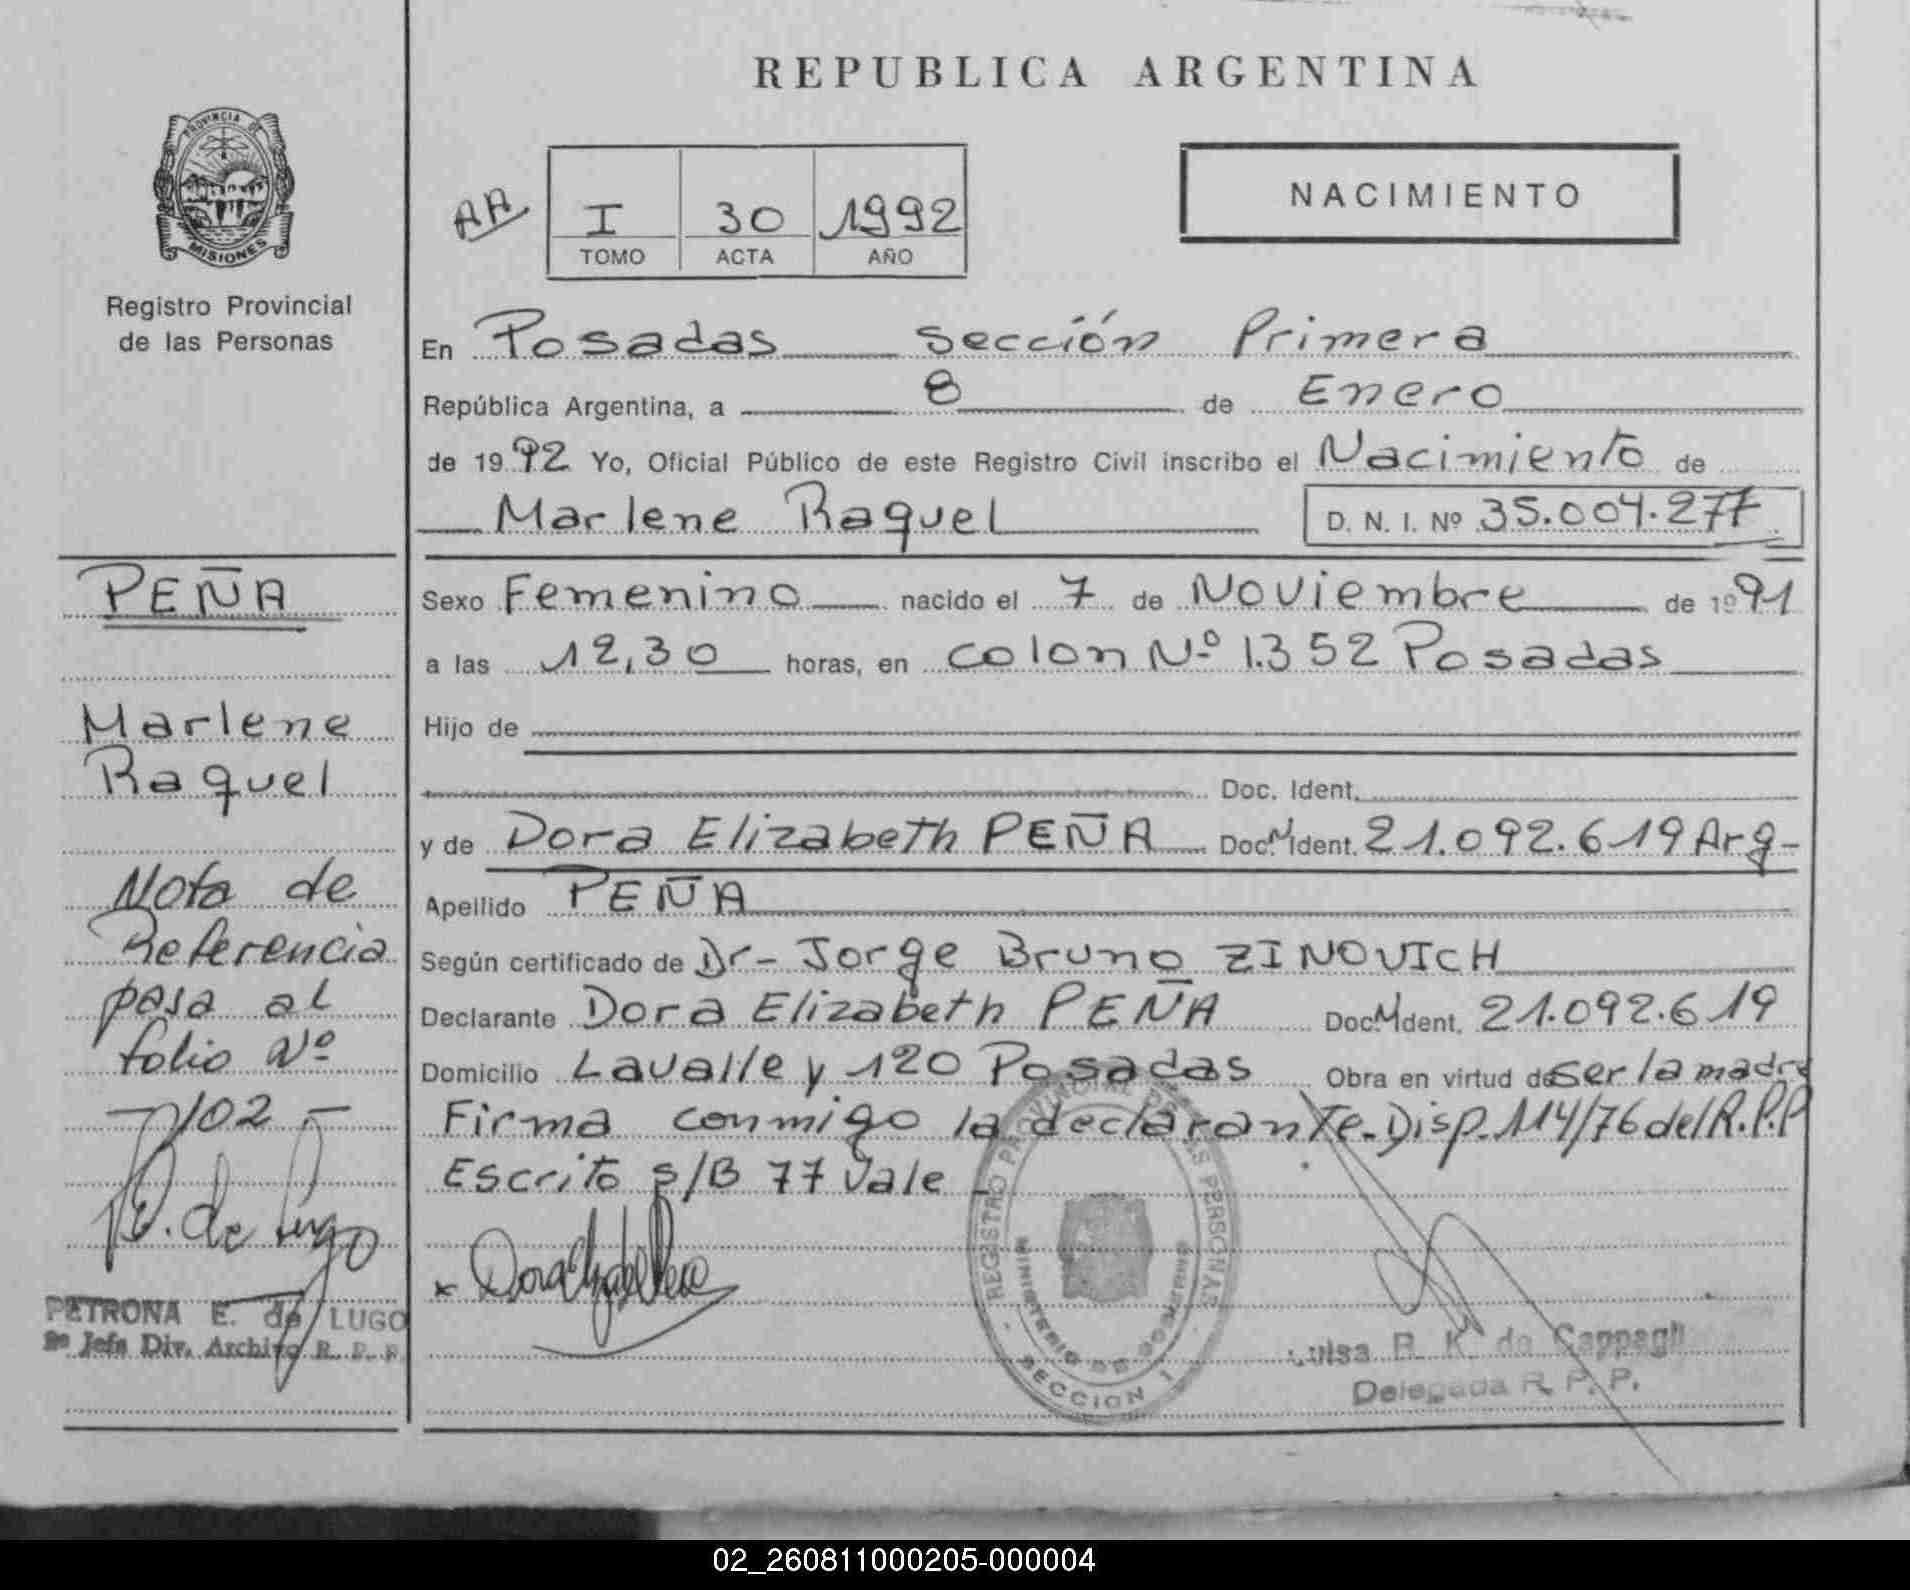 REPUBLICA ARGENTINA
PROVINCIA DE
MISIONES
Registro Provincial
de las Personas
AA
I 30 1992
TOMO ACTA AÑO
NACIMIENTO
En Posadas sección Primera
República Argentina, a 8 de Enero
de 1992 Yo, Oficial Público de este Registro Civil inscribo el Nacimiento de
Marlene Raquel D. N. I. Nº 35.004.277
Sexo Femenino nacido el 7 de Noviembre de 1991
a las 12,30 horas, en colon Nº 1.352 Posadas
Hijo de
Doc. Ident.
y de Dora Elizabeth PEÑA Doc. N Ident. 21.092.619 Arg-
Apellido PEÑA
Según certificado de Dr- Jorge Bruno ZINOVICH
Declarante Dora Elizabeth PEÑA Doc. N Ident. 21.092.619
Domicilio Lavalle y 120 Posadas Obra en virtud de ser la madre
Firma conmigo la declarante. Disp. 114/76 del R.P.P
Escrito s/B 77 Vale -
PEÑA
Marlene
Raquel
Nota de
Referencia
pasa al
folio Nº
-102-
P. de Lugo
PETRONA E. de LUGO
Jefa Div. Archivo R. P. P.
REGISTRO PROVINCIAL DE LAS PERSONAS
MINISTERIO DE GOBIERNO
SECCION 1
Luisa R. K. de Cappagli
Delegada R. P. P.
02_260811000205-000004